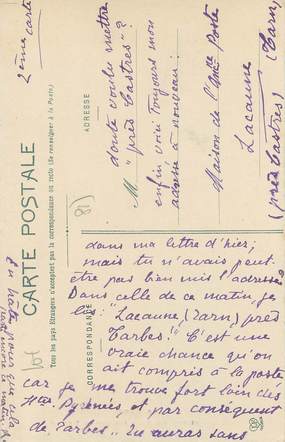 2ème carte
CARTE POSTALE
Tous les pays étrangers n'acceptent pas la correspondance au recto (Se renseigner à la Poste)
CORRESPONDANCE
ADRESSE
dans ma lettre d'hier;
mais tu n'avais peut-
être pas bien mis l'adresse?
Dans celle de ce matin, je
lis: "Lacaune, (Tarn) près
Tarbes." C'est une
vraie chance qu'on
ait compris à la poste
car je me trouve fort loin des
Htes Pyrénées, et par conséquent
de Tarbes.. Tu auras sans
doute voulu mettre
"près Castres"?
enfin voici toujours mon
adresse à nouveau:
M
Maison de l'
Poste
Lacaune
(près Castres) (Tarn)
81)
lot